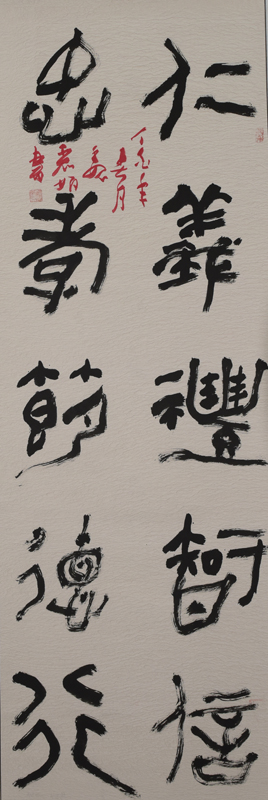 仁義禮智信
忠孝節德行